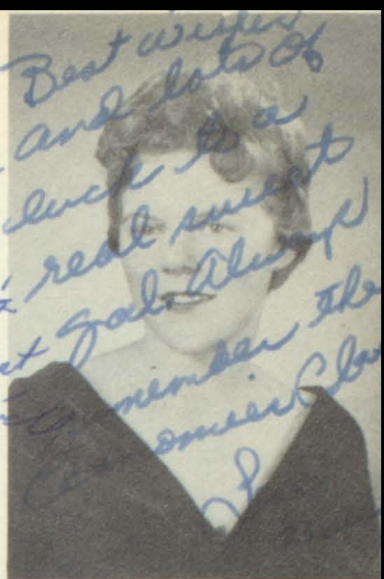 Best wishes
and lots of
luck to a
real sweet
gal. Always
remember the